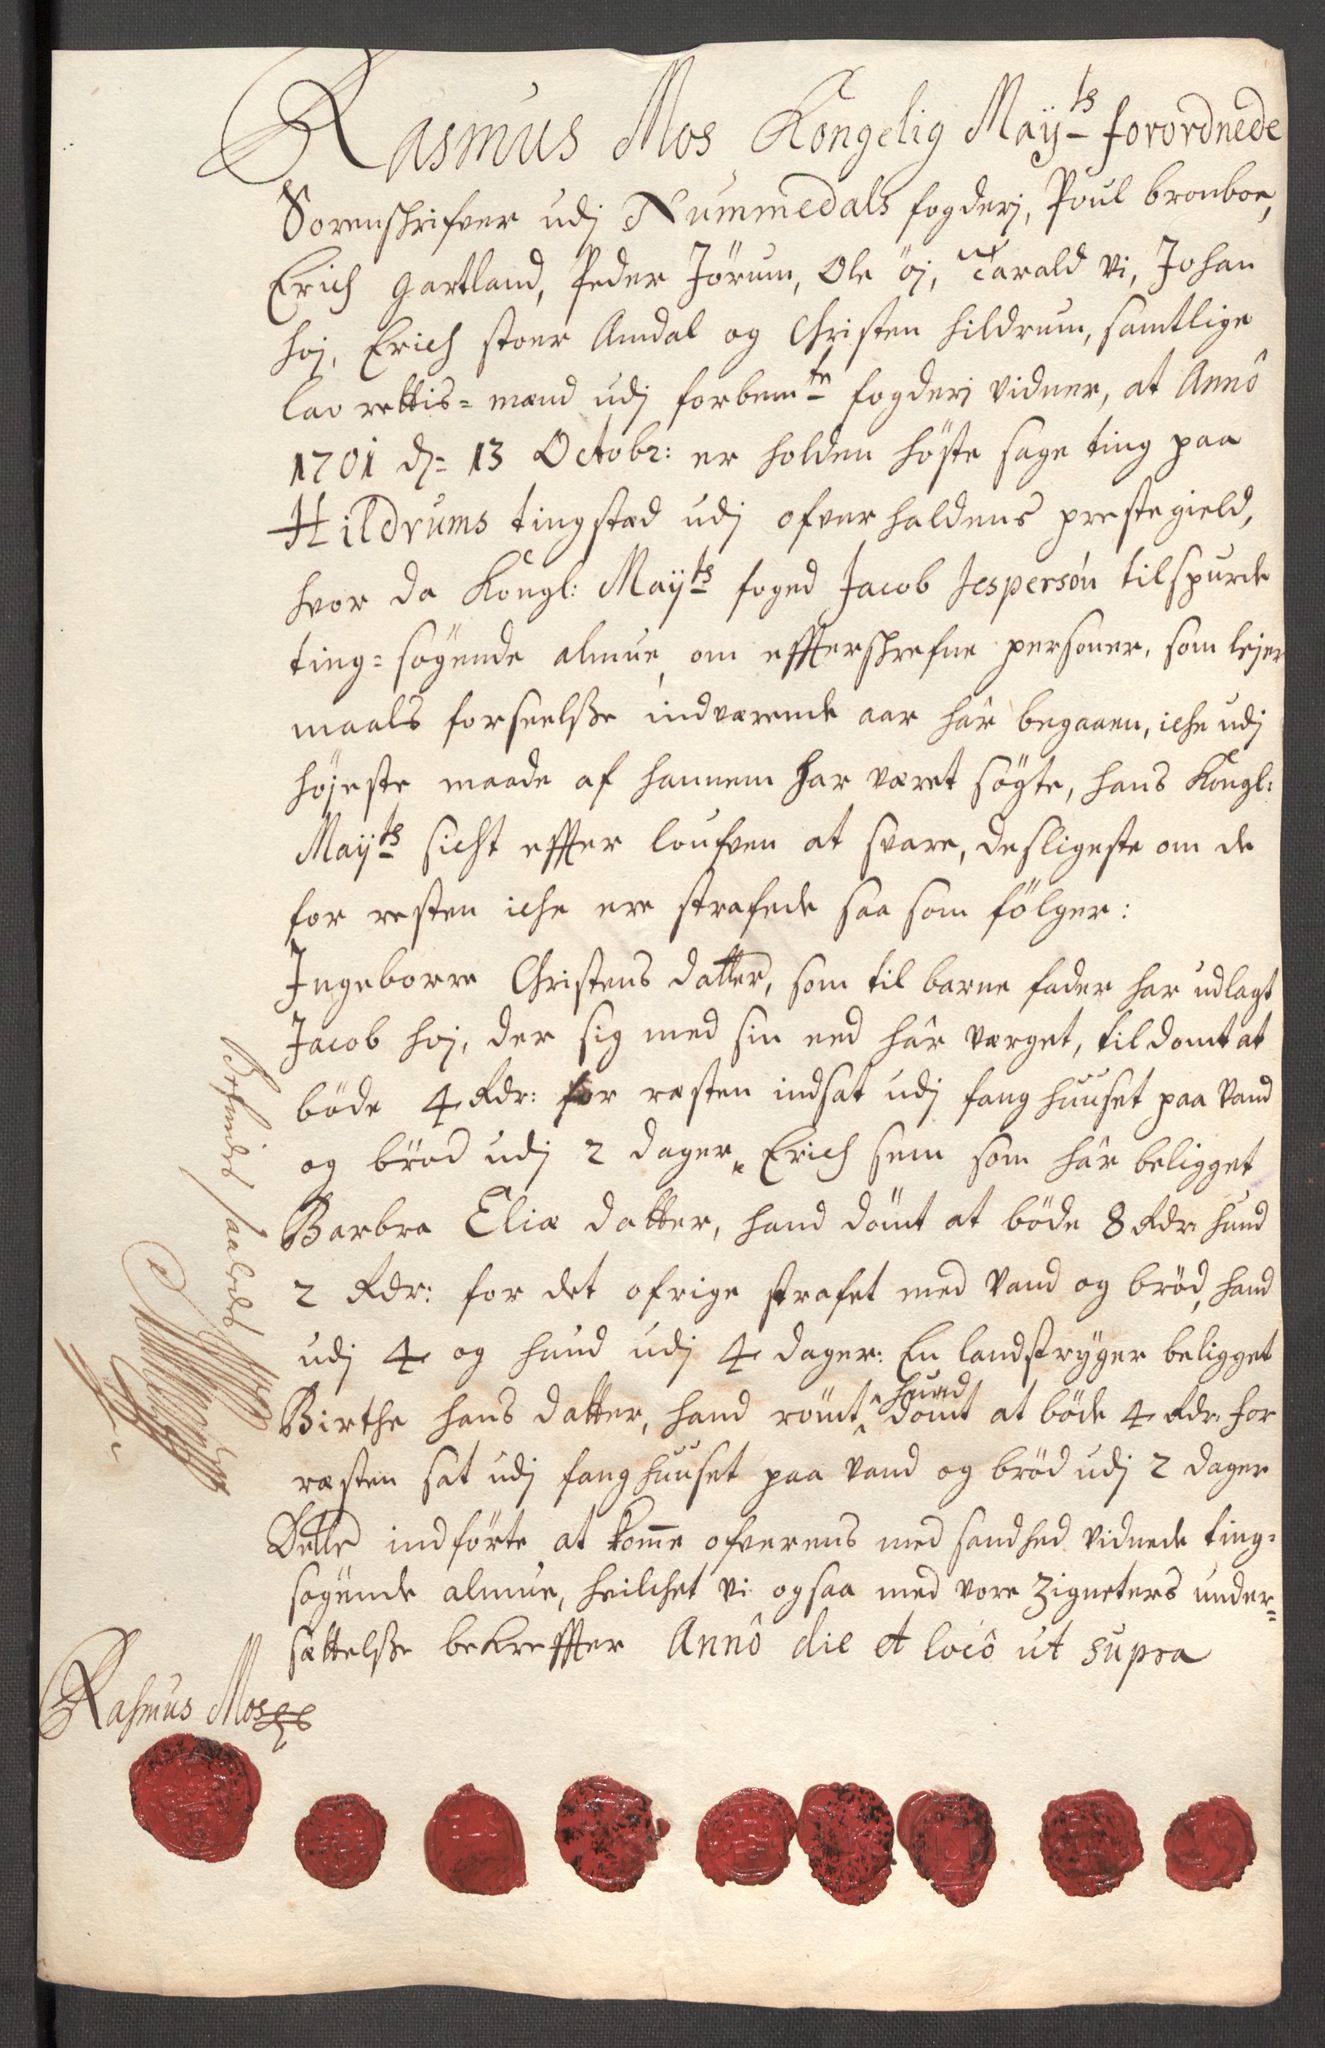 Rasmus Mos Kongelig Maÿts forordnede
Sorenskrifver udj Nummedals fogderj, Poul bronboe,
Erich gartland, Peder Jörum, Ole öj, Tarald vi, Johan
hoj, Erich stoer Amdal og Christen hildrum, samtlige
lav rettis= mænd udj forbemte fogderj vidner, at Annô
1701 d= 13 Octobr: er holden höste sage ting paa
Hildrums tingstæd udj ofverhaldens prestegield,
hvor da Kongl: Maÿts foged Jacob Jespersøn tilspurde
ting= søgende almue om effterskrefne personer, som lejer
maals forseelsze indværende aar hâr begaaen, iche udj
højeste maade af hannem har været søgte, hans Kongl:
Maÿts sicht effter loufven at svare, desligeste om de
for resten iche ere strafede saa som fölger:
Ingeborre Christens datter, som til barne fader har udlagt
Jacob hoj, der sig med sin eed hâr værget, tildomt at
böde 4 Rdr: for ræsten indsat udj fanghuuset paa vand
og bröd udj 2 dager, Erich sem som hâr beligget
Barbra Eliæ datter, hand dömt at böde 8 Rdr hund
2 Rdr: for det ofrige strafet med vand og bröd, hand
udj 4 og hund udj 4 dager: En landstryger beligget
Birthe hans datter, hand römt, hund dömt at böde 4 Rdr: for
ræsten sat udj fanghuuset paa vand og bröd udj 2 dager
Dette indförte at komme ofverens med sandhed vidnede ting=
søgende almue, hvilchet vi ogsaa med vore Zigneters under=
sættelsze bekreffter Annô die et locô ut supra
Rasmus Mos
Befindes saaledes